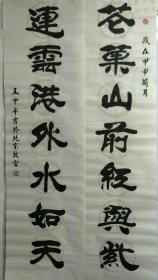 歲在甲申菊月
花菓山前紅與紫
連雲港外水如天
王中年書於北京故宮